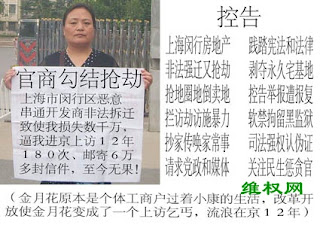 官商勾结抢劫
上海市闵行区恶意
串通开发商非法拆迁
致使我损失数千万,
逼我进京上访12年
180次、邮寄6万
多封信件,至今无果!
控告
上海闵行房地产 践踏宪法和法律
非法强迁又抢劫 剥夺永久宅基地
抢地圈地倒卖地 控告举报遭报复
拦访劫访施暴力 软禁拘留黑监狱
抄家传唤家常事 司法强权认伪证
请求党政和媒体 关注民生惩贪官
维权网
(金月花原本是个体工商户过着小康的生活,改革开
放使金月花变成了一个上访乞丐,流浪在京12年)